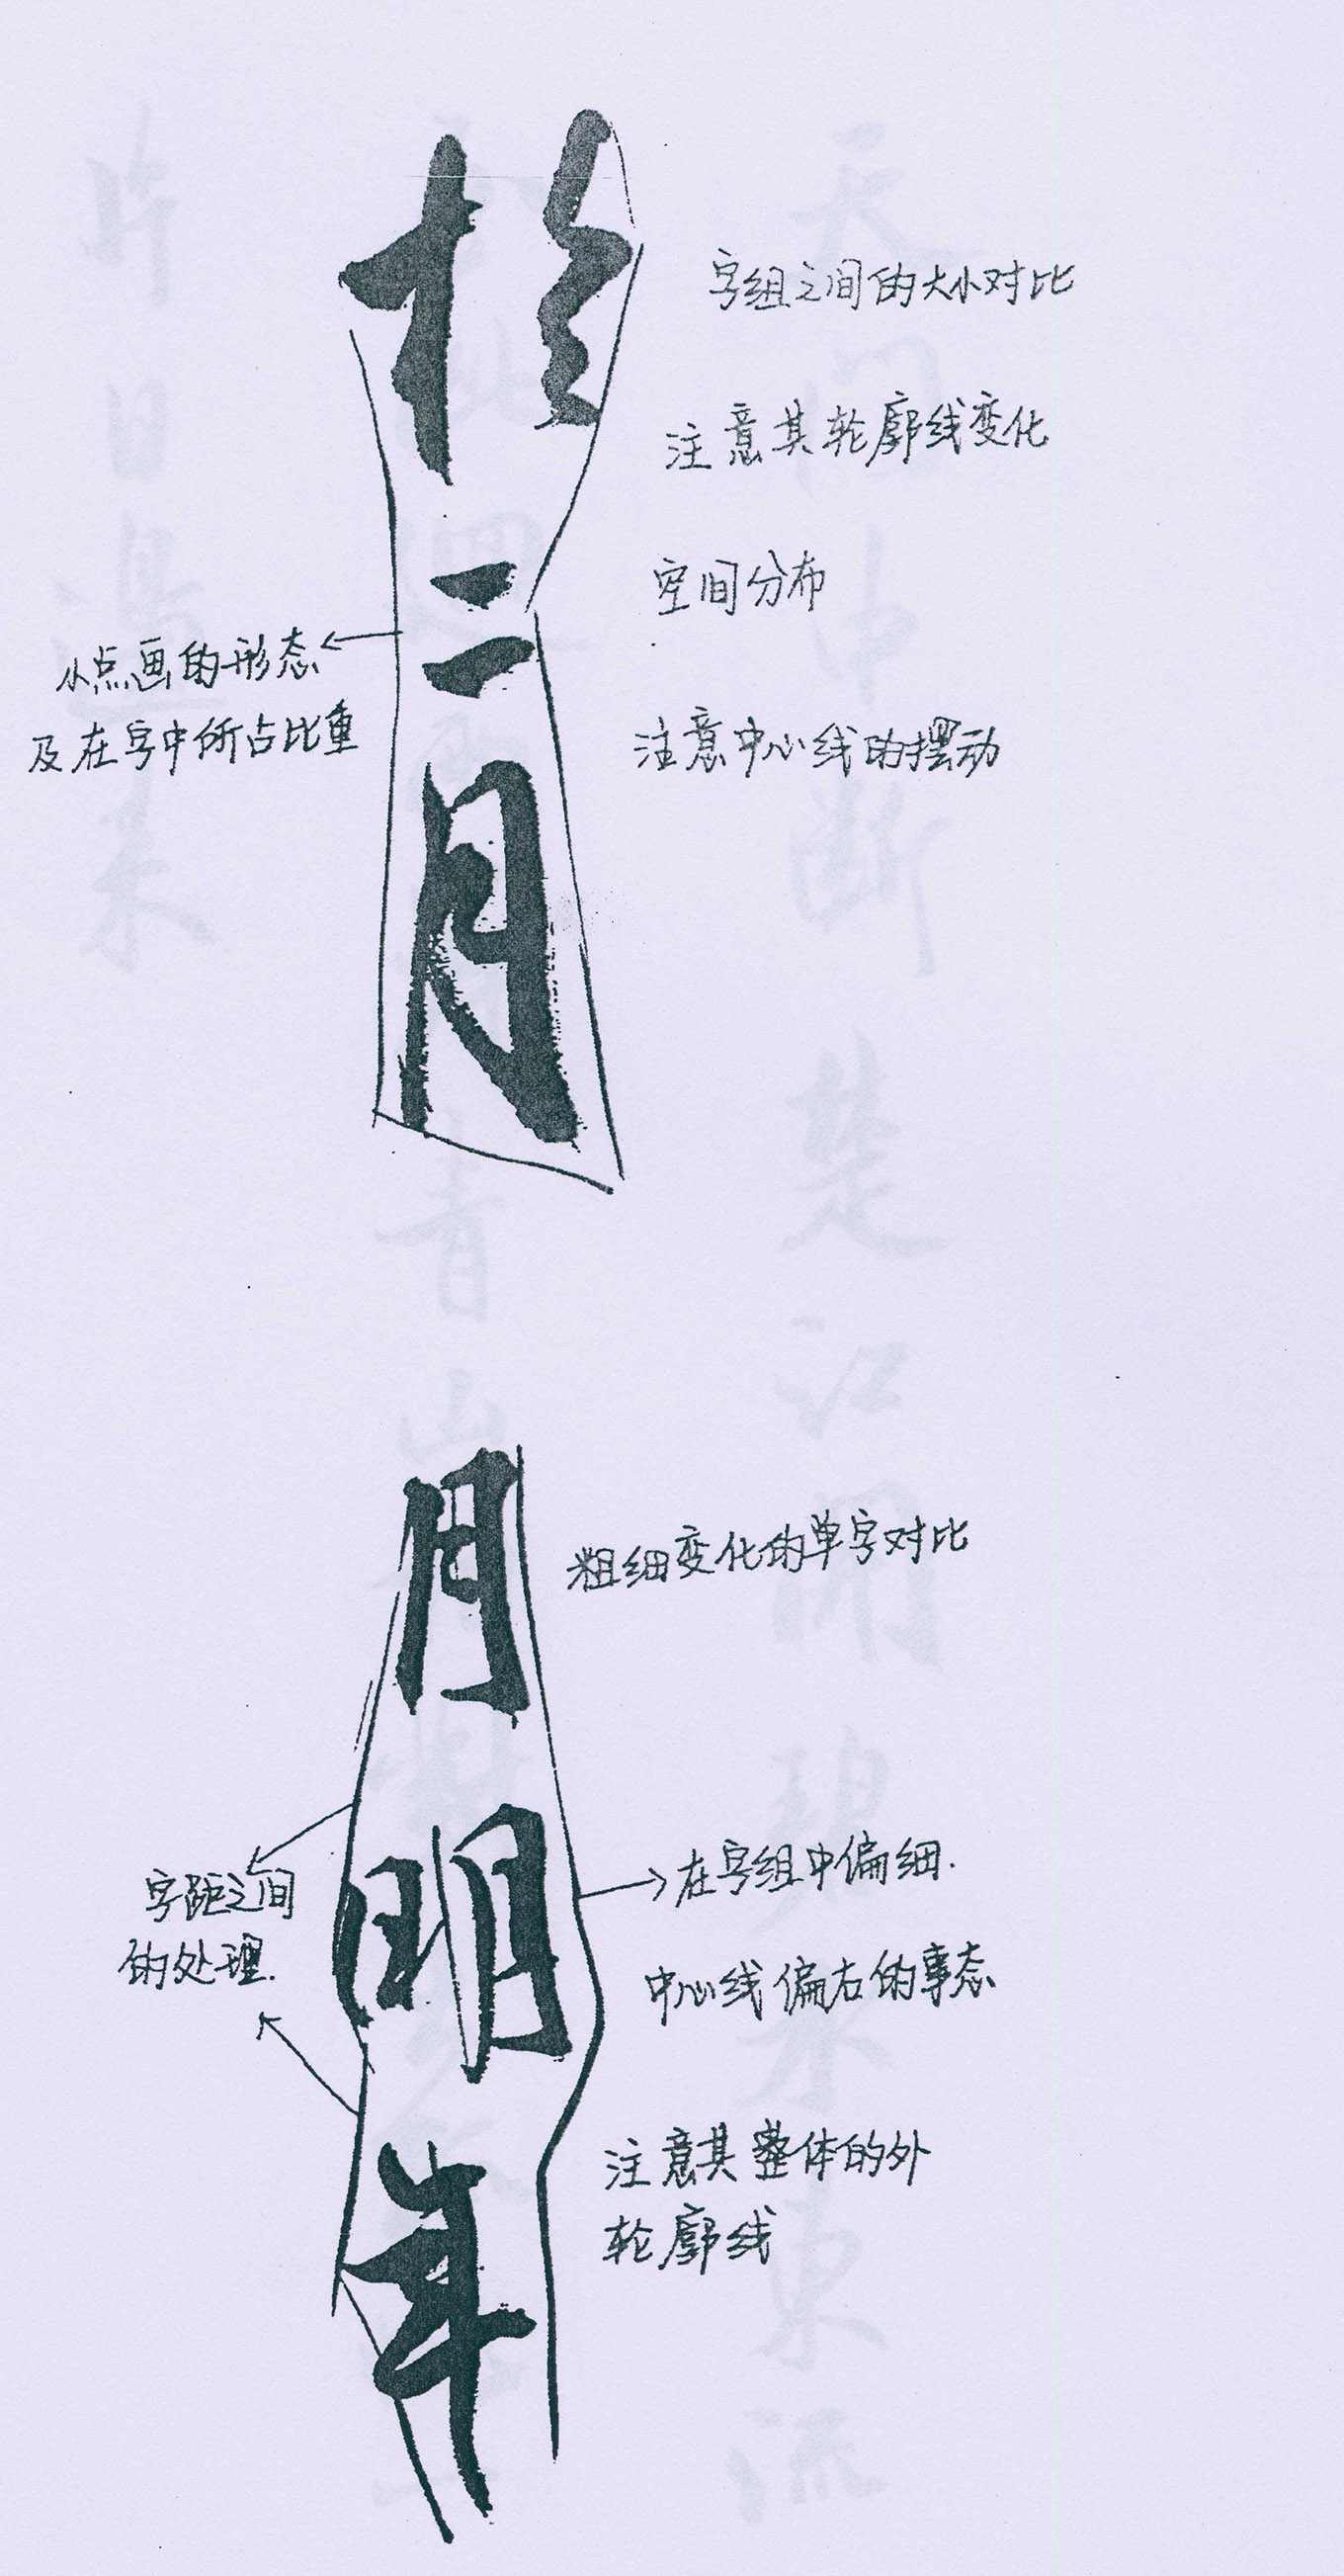 扵二月
字组之间的大小对比
注意其轮廓线变化
空间分布
小点画的形态
及在字中所占比重
注意中心线的摆动
月明年
粗细变化的单字对比
字距之间
的处理.
在字组中偏细.
中心线偏右的事态
注意其整体的外
轮廓线